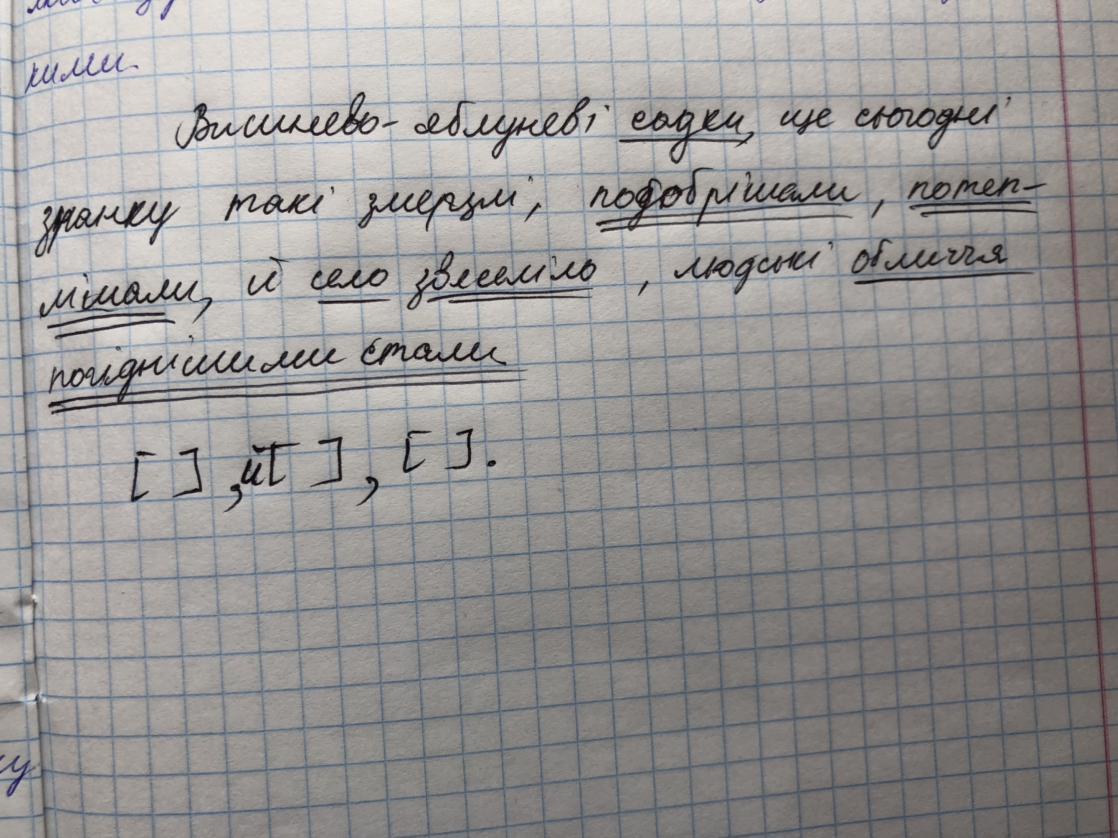 кими.
Вишнево-яблуневі садки, ще сьогодні
зранку такі змерзлі, подобрішали, потеп-
лішали, й село звеселіло, людські обличчя
погіднішими стали
[ ], й [ ], [ ].